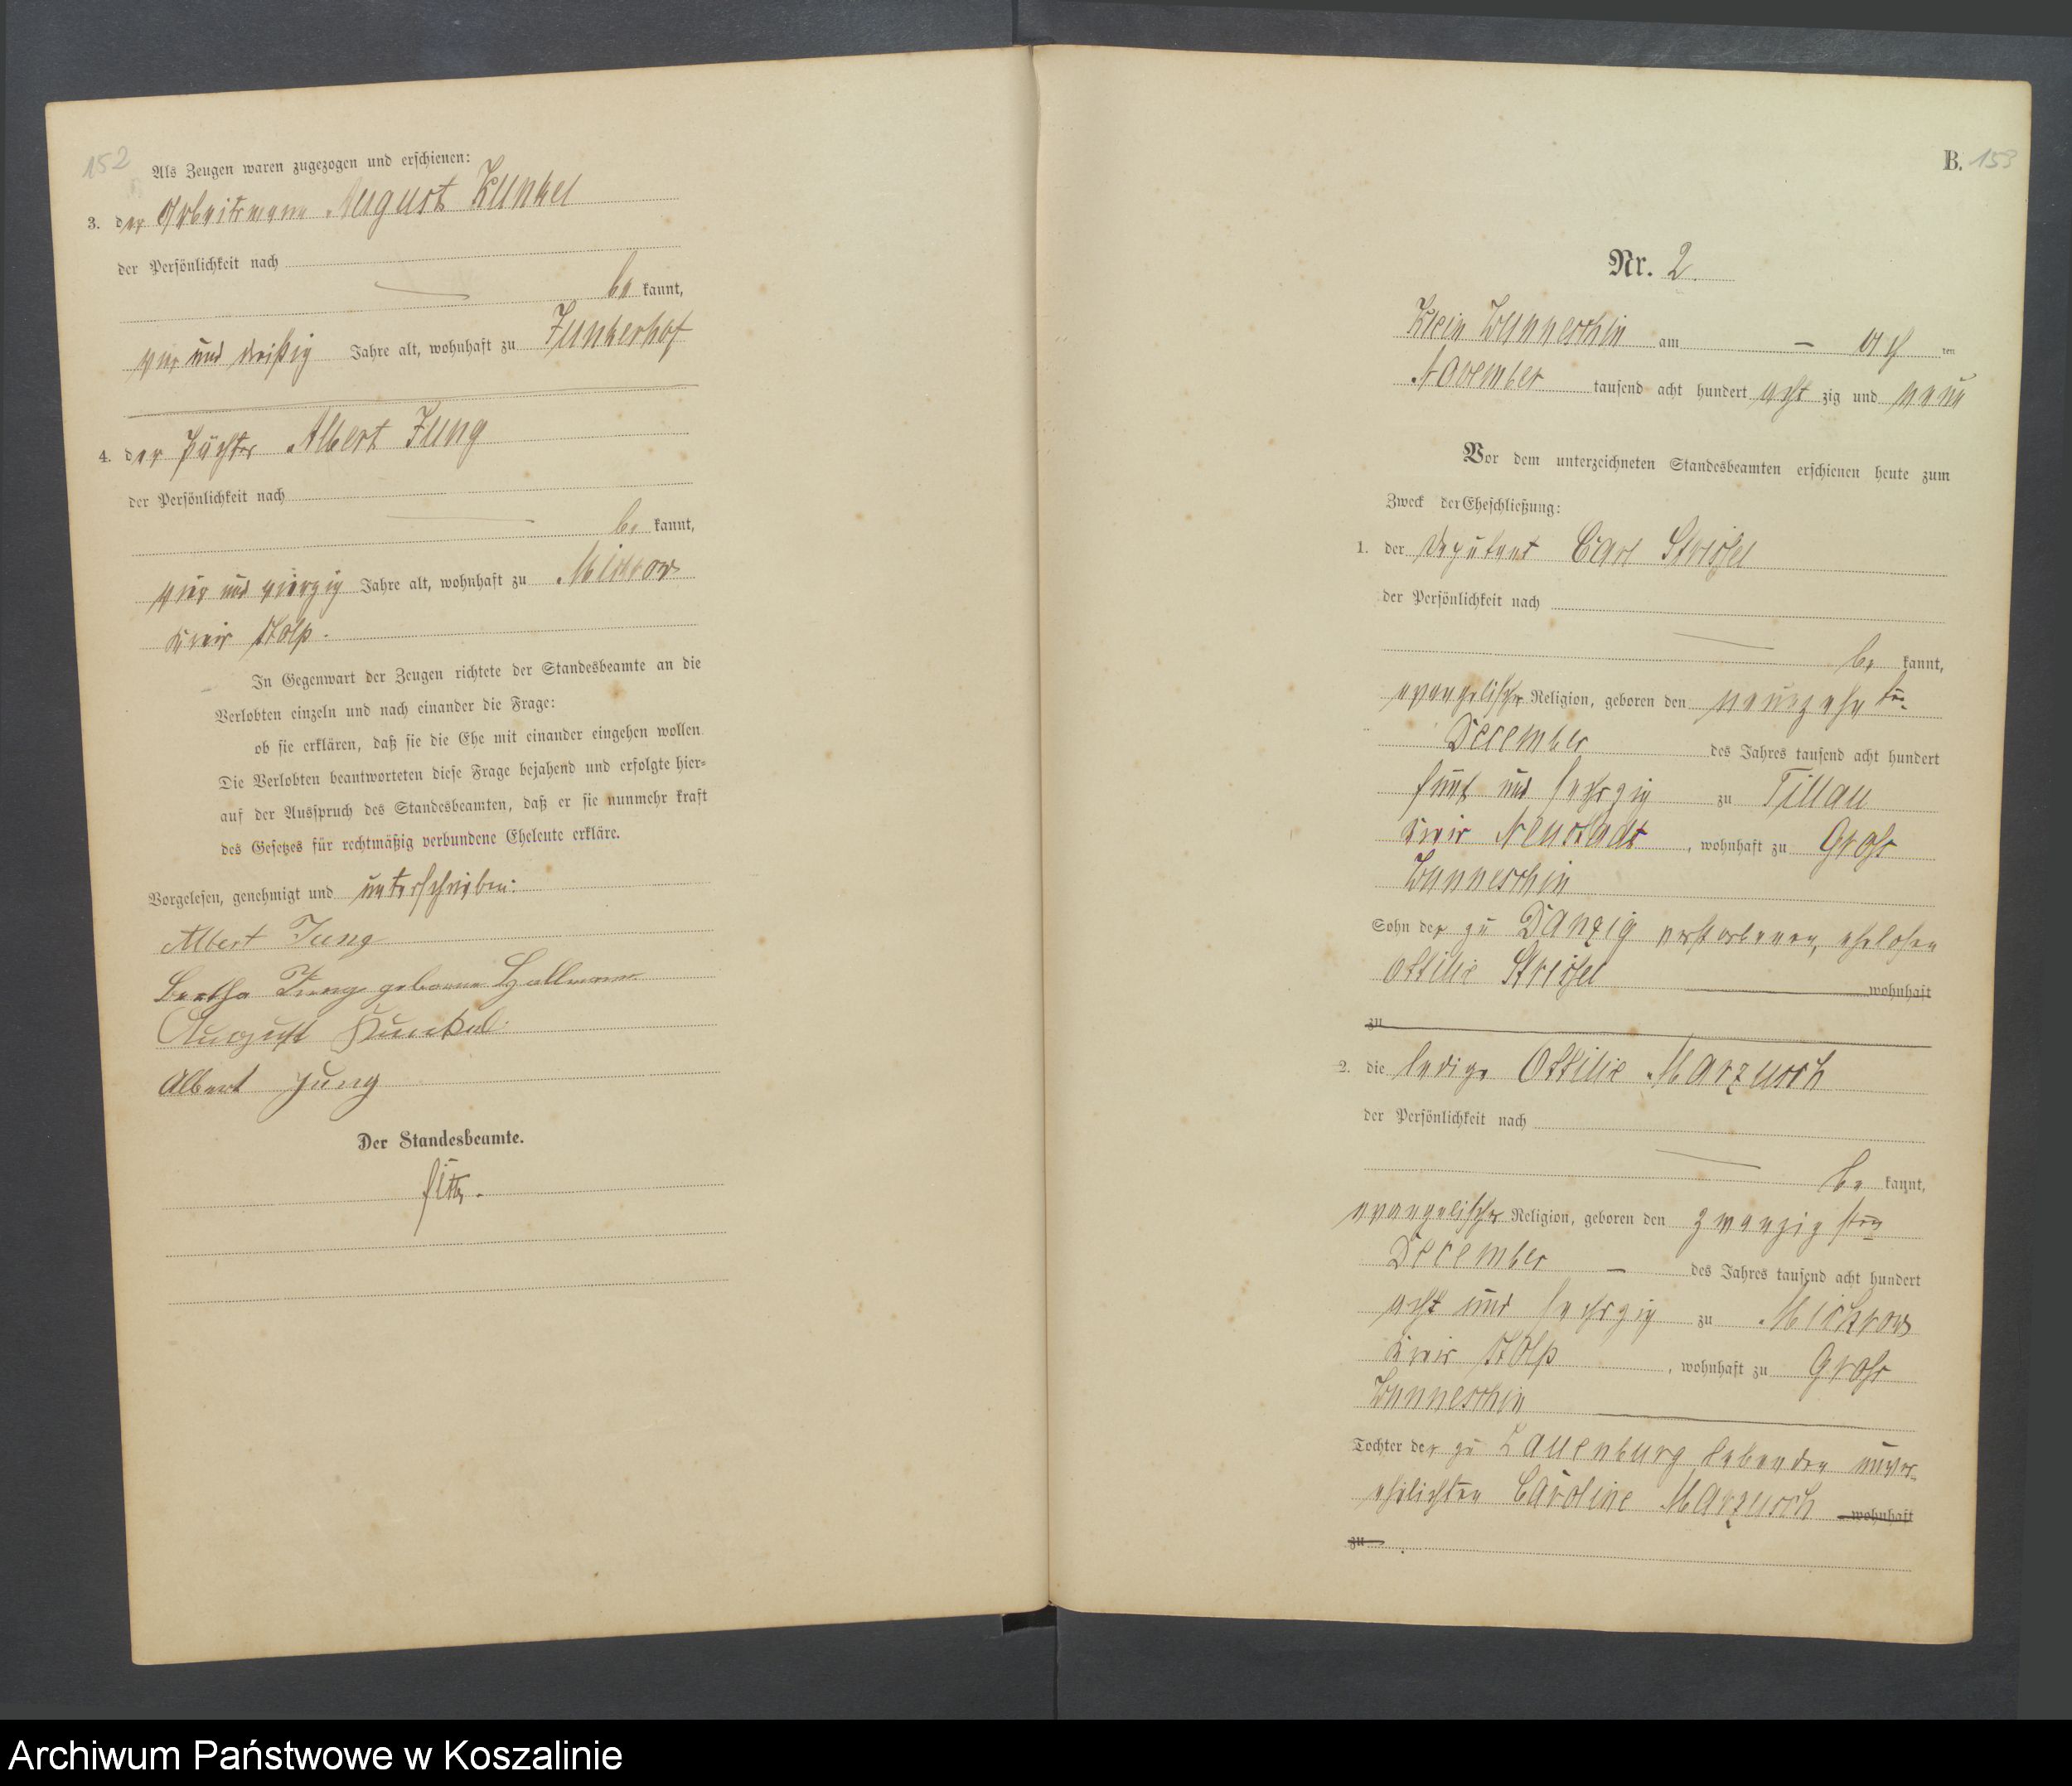 152
Als Zeugen waren zugezogen und erschienen:
3. der Arbeitsmann August Kunkel
der Persönlichkeit nach
be kannt,
vier und dreißig Jahre alt, wohnhaft zu Junkerhof
4. der Pächter Albert Jung
der Persönlichkeit nach
be kannt,
vier und vierzig Jahre alt, wohnhaft zu Mickrow
Kreis Stolp.
In Gegenwart der Zeugen richtete der Standesbeamte an die
Verlobten einzeln und nach einander die Frage:
ob sie erklären, daß sie die Ehe mit einander eingehen wollen.
Die Verlobten beantworteten diese Frage bejahend und erfolgte hier-
auf der Ausspruch des Standesbeamten, daß er sie nunmehr kraft
des Gesetzes für rechtmäßig verbundene Eheleute erkläre.
Vorgelesen, genehmigt und unterschrieben:
Albert Jung
Bertha Jung geborene Hallmann
August Kunkel.
Albert Jung
Der Standesbeamte.
B. 153
Nr. 2.
Klein Wunneschin am – acht ten
November tausend acht hundert acht zig und neun
Vor dem unterzeichneten Standesbeamten erschienen heute zum
Zweck der Eheschließung:
1. der Deputant Carl Streißel
der Persönlichkeit nach
be kannt,
evangelischer Religion, geboren den neunzehnten
December des Jahres tausend acht hundert
fünf und sechszig zu Tillau
Kreis Neustadt, wohnhaft zu Groß
Wunneschin
Sohn der zu Danzig verstorbenen, ehelosen
Ottilie Streißel wohnhaft
zu
2. die ledige Ottilie Marzusch
der Persönlichkeit nach
be kannt,
evangelischer Religion, geboren den zwanzigsten
December – des Jahres tausend acht hundert
acht und sechszig zu Mickrow
Kreis Stolp, wohnhaft zu Groß
Wunneschin
Tochter der zu Lauenburg lebenden unver-
ehelichten Caroline Marzusch wohnhaft
zu
Archiwum Państwowe w Koszalinie